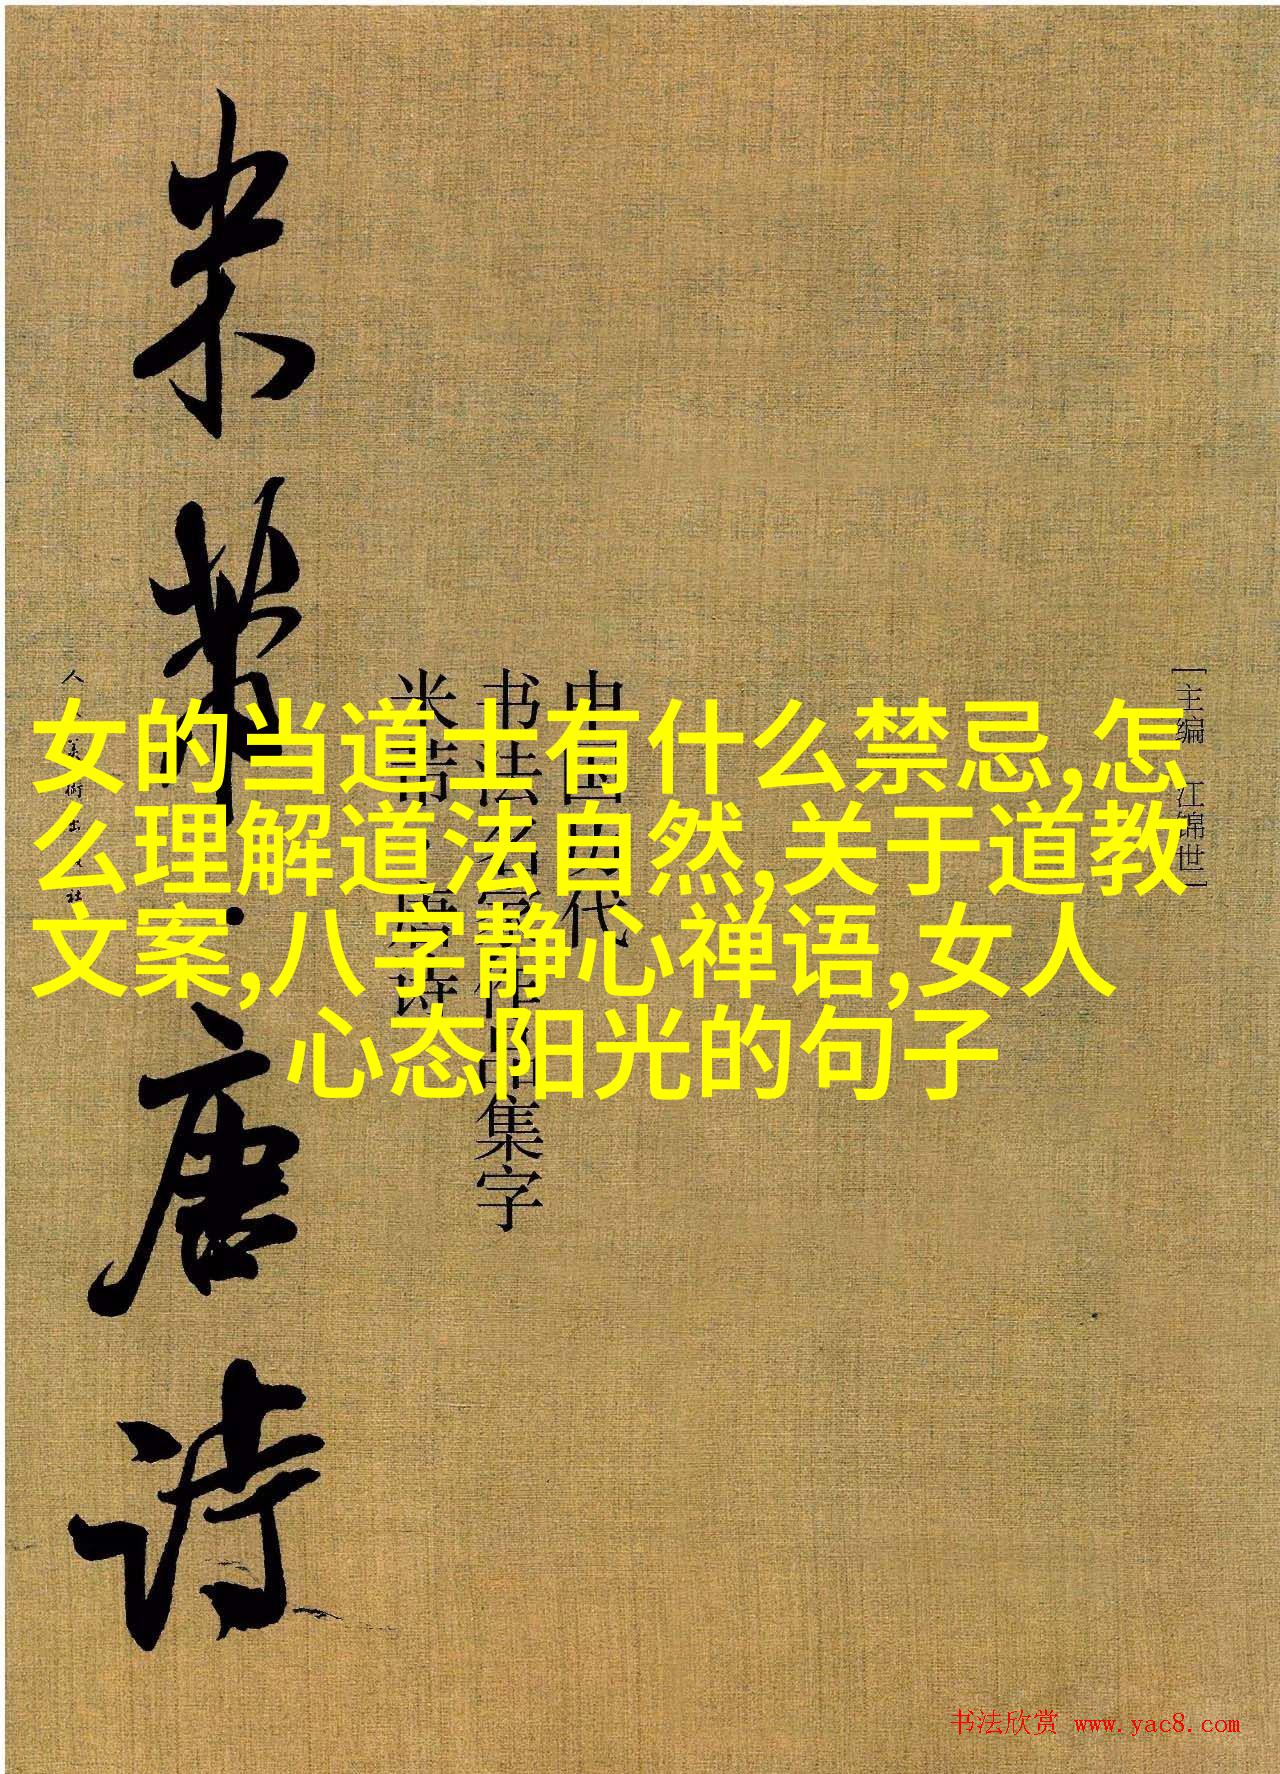 女的当道士有什么禁忌,怎
么理解道法自然,关于道教
文案,八字静心禅语,女人
心态阳光的句子
[主编 江锦世]
中国历代
书法名家作品集字
米芾·唐诗
米芾·唐诗
书法欣赏 www.yac8.com